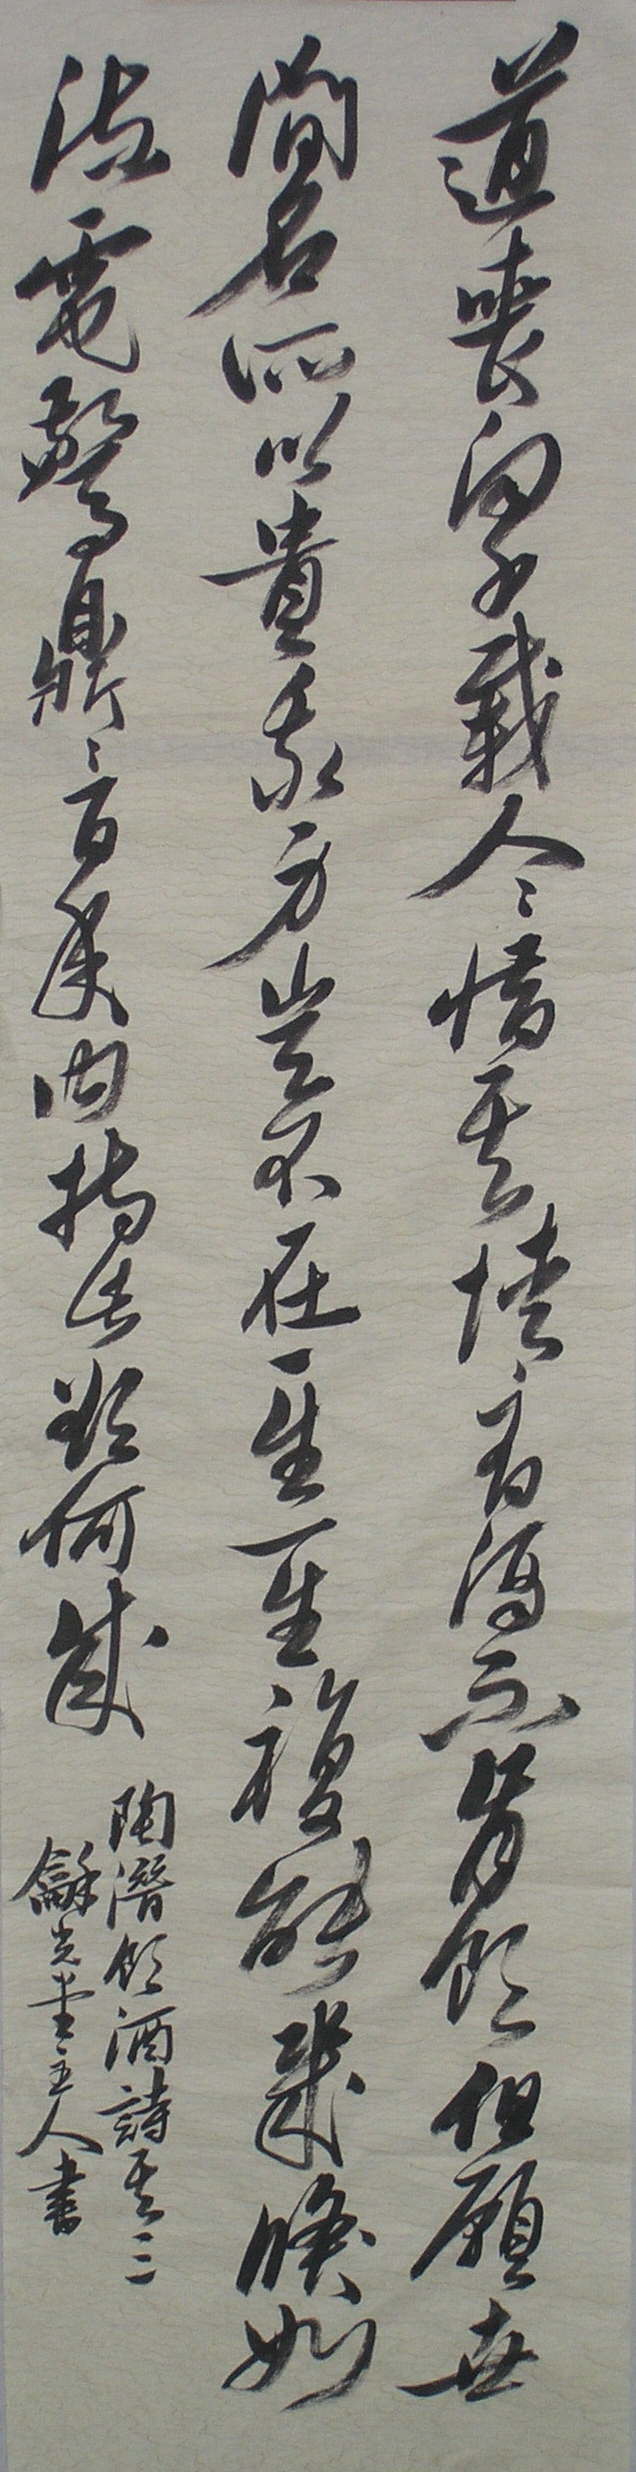 道喪向千載人々惜其情有酒不肯飲但顧世
間名所以貴我身豈不在一生一生復能幾倏如
流電驚鼎々百年內持此欲何成
陶潛飲酒詩其三
龢光堂主人書